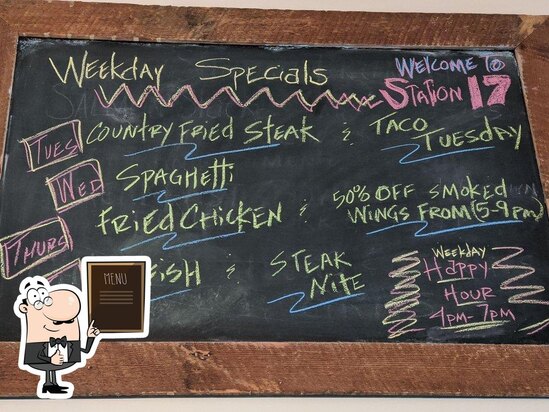 Weekday Specials
Welcome To
Station 17
Tues Country Fried Steak & Taco Tuesday
Wed Spaghetti
Thurs Fried Chicken & 50% off smoked
Wings from (5-9pm)
Fish & Steak Nite
Weekday
Happy
Hour
4pm-7pm
MENU